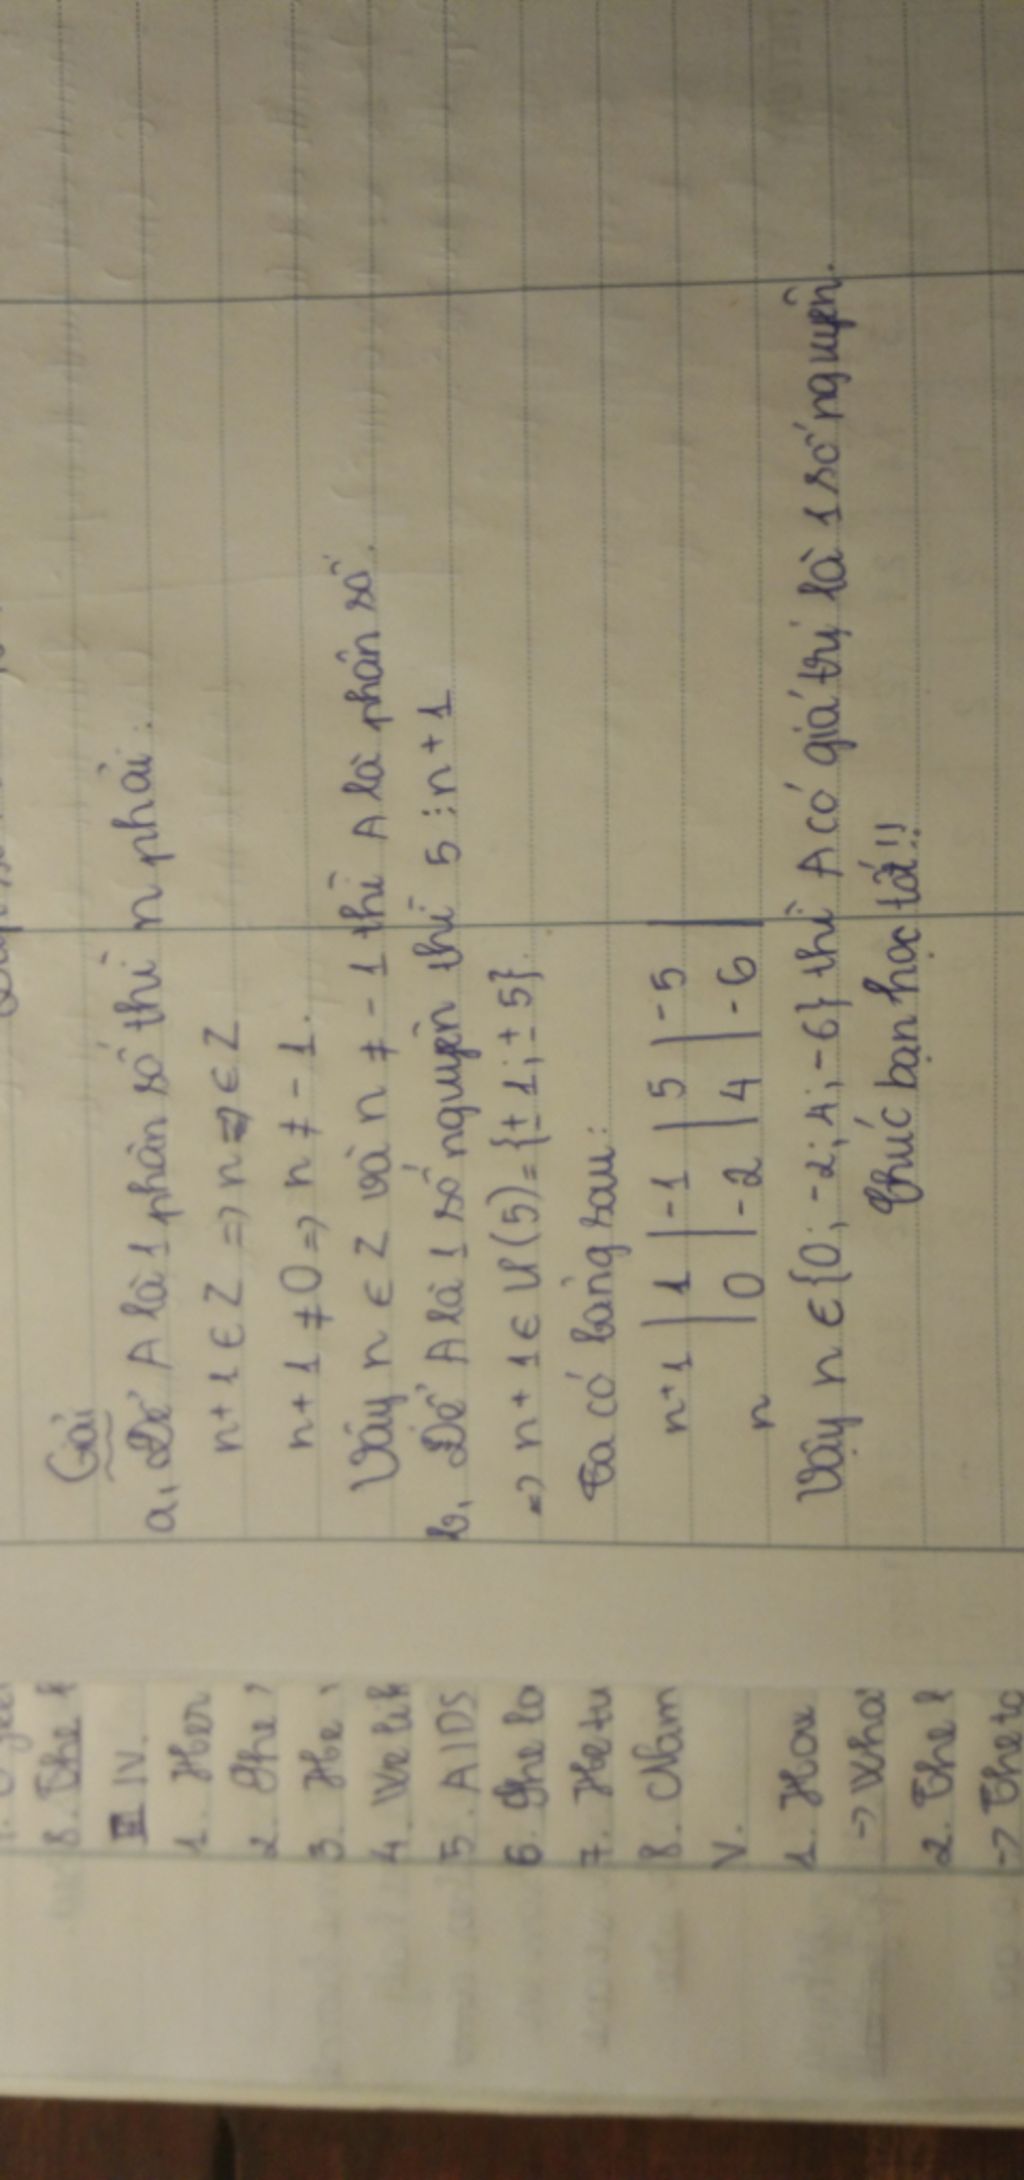 Giải
a, Để A là 1 phân số thì n phải:
n+1 ∈ Z => n ∈ Z
n+1 ≠ 0 => n ≠ -1.
Vậy n ∈ Z và n ≠ -1 thì A là phân số.
b, Để A là 1 số nguyên thì 5 ⋮ n+1
=> n+1 ∈ Ư(5) = {±1; ±5}.
Ta có bảng sau:
n+1 | 1 | -1 | 5 | -5
n | 0 | -2 | 4 | -6
Vậy n ∈ {0; -2; 4; -6} thì A có giá trị là 1 số nguyên.
Chúc bạn học tốt!!
8. The
IV.
1. Her
2. She
3. He
4. We lik
5. AIDS
6. She lo
7. He tu
8. Nam
V.
1. How
-> Wha
2. The
-> The to